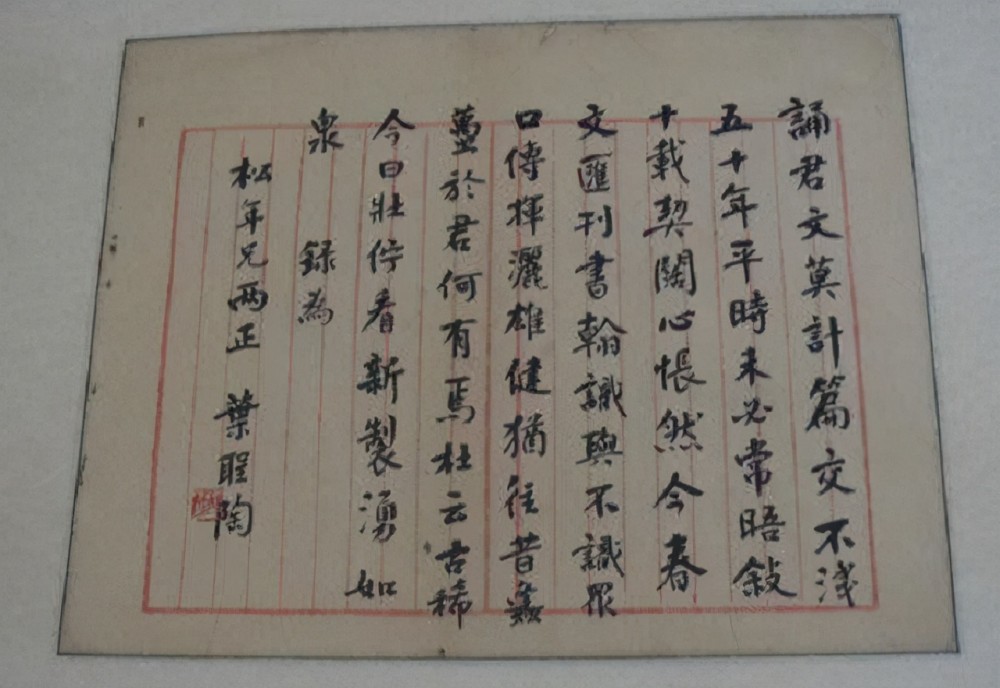 誦君文莫計篇交不淺
五十年平時未必常晤敍
十載契闊心悵然今春
文匯刊書翰識與不識眾
口傳揮灑雄健猶往昔蠭
蠆於君何有焉杜云古稀
今日壯佇看新製湧如
泉 録為
松年兄兩正 葉聖陶